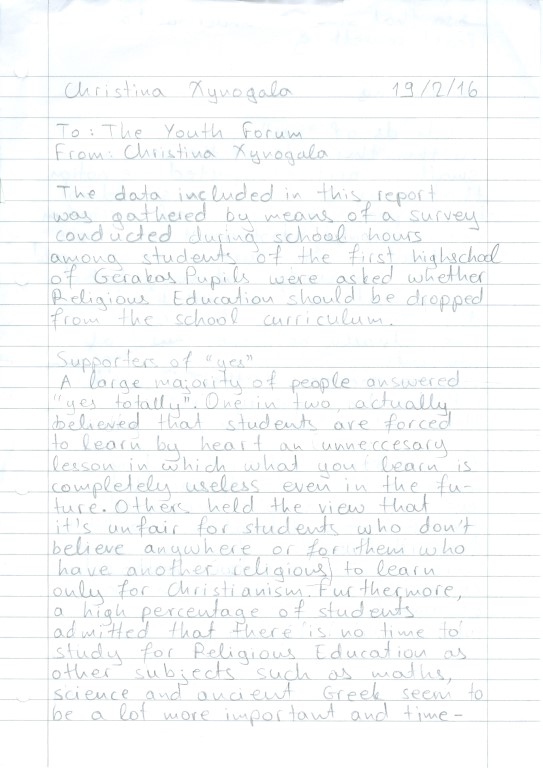 Christina Xynogala 19/2/16
To: The Youth Forum
From: Christina Xynogala
The data included in this report
was gathered by means of a survey
conducted during school hours
among students of the first highschool
of Gerakas Pupils were asked whether
Religious Education should be dropped
from the school curriculum.
Supporters of "yes"
A large majority of people answered
"yes totally". One in two, actually
believed that students are forced
to learn by heart an unneccesary
lesson in which what you learn is
completely useless even in the fu-
ture. Others held the view that
it's unfair for students who don't
believe anywhere or for them who
have another religious) to learn
only for Christianism. Furthermore,
a high percentage of students
admitted that there is no time to
study for Religious Education as
other subjects such as maths,
science and ancient Greek seem to
be a lot more important and time-